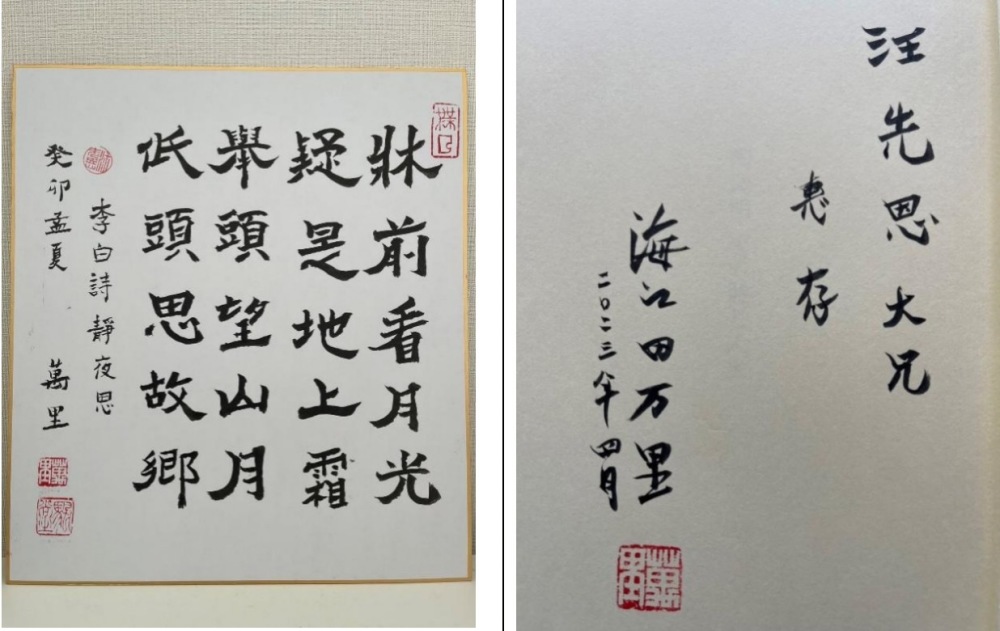 牀前看月光
疑是地上霜
舉頭望山月
低頭思故鄉
李白詩 靜夜思
癸卯孟夏 萬里
萬里
汪先恩大兄
惠存
海江田万里
二〇二三年四月
萬里